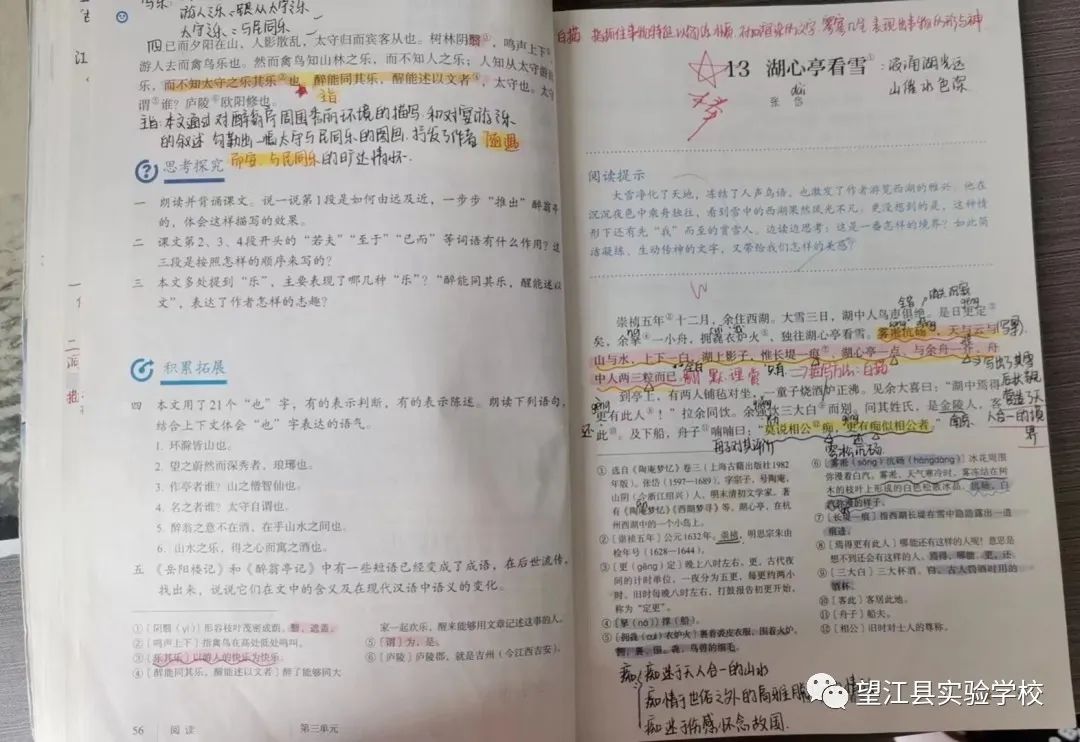 游人之乐
太守之乐：与民同乐
四已而夕阳在山，人影散乱，太守归而宾客从也。树林阴翳①，鸣声上下②，
游人去而禽鸟乐也。然而禽鸟知山林之乐，而不知人之乐；人知从太守游而
乐，而不知太守之乐其乐③也。醉能同其乐，醒能述以文者④，太守也。太守
谓⑤谁？庐陵⑥欧阳修也。
主旨
主旨:本文通过对醉翁亭周围秀丽环境的描写和对宴游之乐
的叙述 勾勒出一幅太守与民同乐的图画.抒发了作者
与民同乐的旷达情怀.
思考探究
一 朗读并背诵课文。说一说第1段是如何由远及近，一步步“推出”醉翁亭
的，体会这样描写的效果。
二 课文第2、3、4段开头的“若夫”“至于”“已而”等词语有什么作用？这
三段是按照怎样的顺序来写的？
三 本文多处提到“乐”，主要表现了哪几种“乐”？“醉能同其乐，醒能述以
文”，表达了作者怎样的志趣？
积累拓展
四 本文用了21个“也”字，有的表示判断，有的表示陈述。朗读下列语句，
结合上下文体会“也”字表达的语气。
1. 环滁皆山也。
2. 望之蔚然而深秀者，琅琊也。
3. 作亭者谁？山之僧智仙也。
4. 名之者谁？太守自谓也。
5. 醉翁之意不在酒，在乎山水之间也。
6. 山水之乐，得之心而寓之酒也。
五 《岳阳楼记》和《醉翁亭记》中有一些短语已经变成了成语，在后世流传。
找出来，说说它们在文中的含义及在现代汉语中语义的变化。
①〔阴翳（yì）〕形容枝叶茂密成荫。翳，遮盖。
②〔鸣声上下〕指禽鸟在高处低处鸣叫。
③〔乐其乐〕以游人的快乐为快乐。
④〔醉能同其乐，醒能述以文者〕醉了能够同大
家一起欢乐，醒来能够用文章记述这事的人。
⑤〔谓〕为，是。
⑥〔庐陵〕庐陵郡，就是吉州（今江西吉安）。
56 阅读 第三单元
白描
13 湖心亭看雪①
dài
张 岱
阅读提示
大雪净化了天地，冻结了人声鸟语，也激发了作者游览西湖的雅兴。他在
沉沉夜色中乘舟独往，看到雪中的西湖果然风光不凡。更没想到的是，这种情
形下还有先“我”而至的赏雪人。边读边思考：这是一番怎样的境界？如此简
洁凝练、生动传神的文字，又带给我们怎样的美感？
崇祯五年②十二月，余住西湖。大雪三日，湖中人鸟声俱绝。是日更定③
矣，余拏④一小舟，拥毳衣炉火⑤，独往湖心亭看雪。雾凇沆砀⑥，天与云与
山与水，上下一白。湖上影子，惟长堤一痕⑦、湖心亭一点、与余舟一芥、舟
中人两三粒而已。
到亭上，有两人铺毡对坐，一童子烧酒炉正沸。见余大喜曰：“湖中焉得
更有此人⑧！”拉余同饮。余强饮三大白⑨而别。问其姓氏，是金陵人，客
此⑩。及下船，舟子⑪喃喃曰：“莫说相公⑫痴，更有痴似相公者。”
①选自《陶庵梦忆》卷三（上海古籍出版社1982
年版）。张岱（1597—1689），字宗子，号陶庵，
山阴（今浙江绍兴）人，明末清初文学家。著
有《陶庵梦忆》《西湖梦寻》等。湖心亭，在杭
州西湖中的一个小岛上。
②〔崇祯五年〕公元1632年。崇祯，明思宗朱由
检年号（1628—1644）。
③〔更（gēng）定〕晚上八时左右。更，古代夜
间的计时单位，一夜分为五更，每更约两小
时。旧时每晚八时左右，打鼓报告初更开始，
称为“定更”。
④〔拏（ná）〕撑（船）。
⑤〔拥毳（cuì）衣炉火〕裹着裘皮衣服，围着火炉。
⑥〔雾凇（sōng）沆砀（hàngdàng）〕冰花周围
弥漫着白汽。雾凇，天气寒冷时，雾冻结在树
木的枝叶上形成的白色松散冰晶。沆砀，白
⑦〔长堤一痕〕指西湖长堤在雪中隐隐露出一道
痕迹。
⑧〔焉得更有此人〕哪能还有这样的人呢！意思是
想不到还会有这样的人。焉得，哪能。更，还。
⑨〔三大白〕三大杯酒。白，古人罚酒时用的
酒杯。
⑩〔客此〕客居此地。
⑪〔舟子〕船夫。
⑫〔相公〕旧时对士人的尊称。
痴 痴迷于天人合一的山水
痴迷于伤感怀念故国.
望江县实验学校